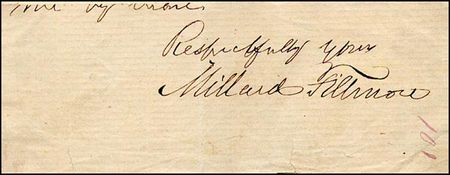 by
Respectfully yours
Millard Fillmore